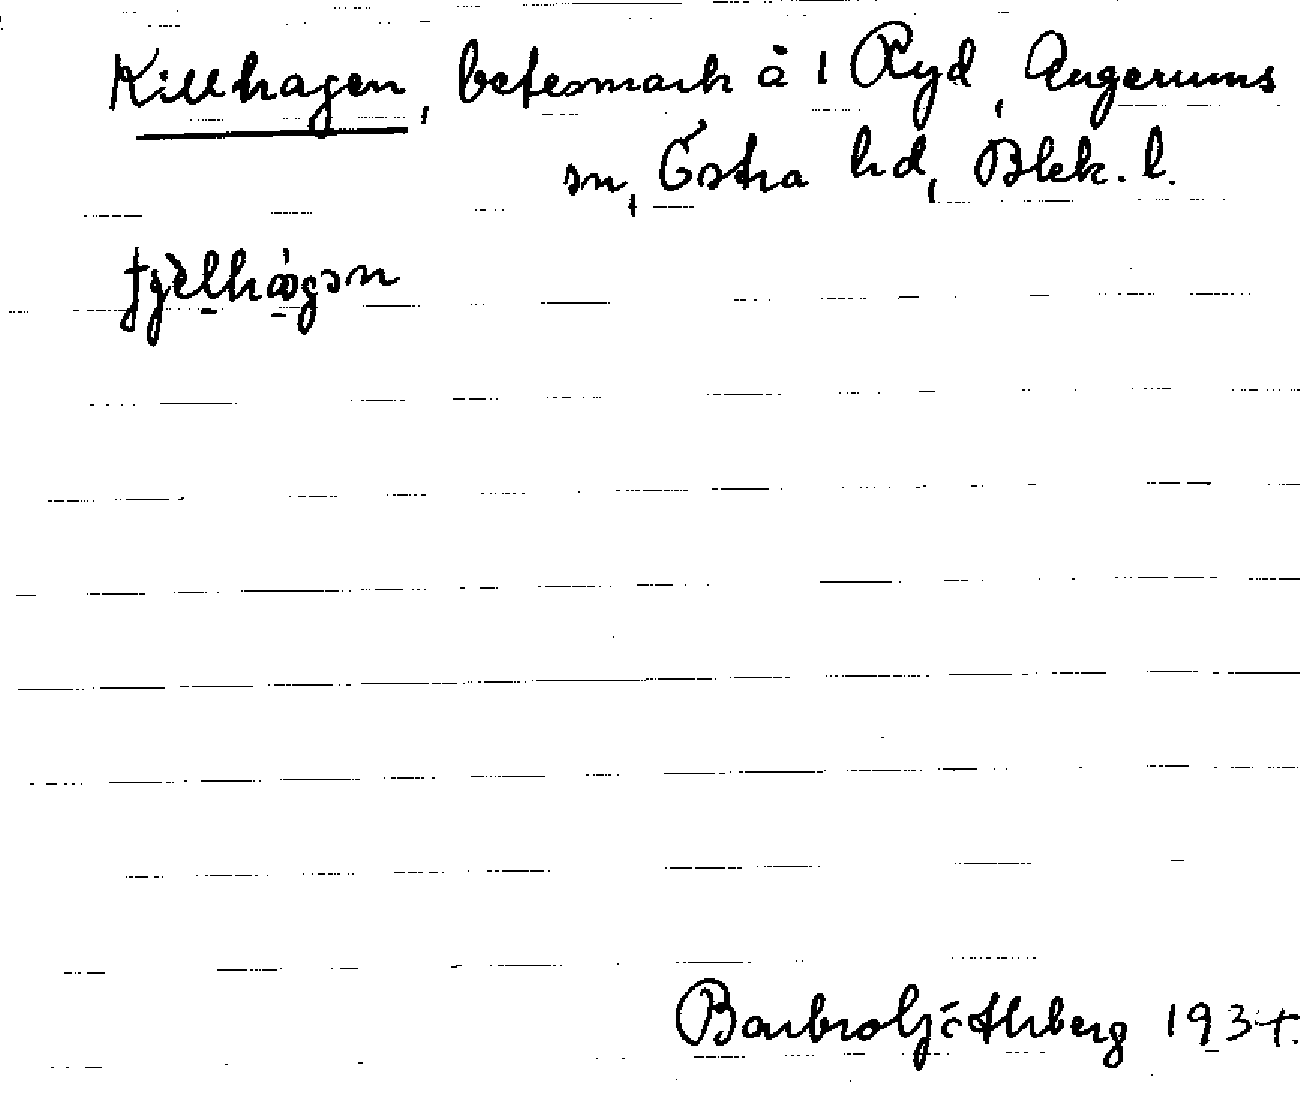 Killhagen, betesmark å 1 Ryd, Augerums
sn, Östra hd, Blek. l.
Barbro Götherberg 1934.